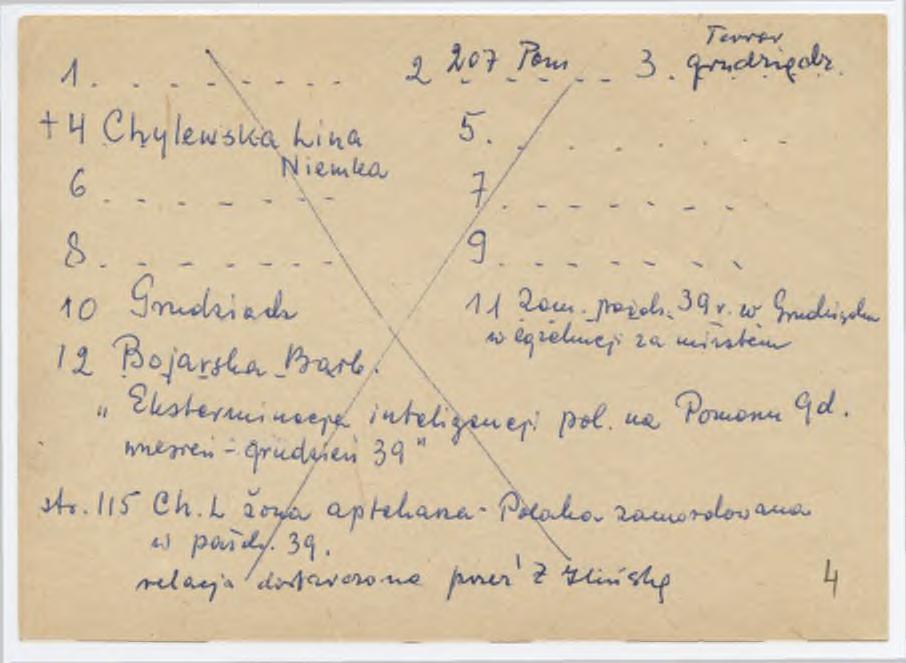 1. - - - - - - - - 2 207 Pom - - 3. Terror Grudziądz.
+4 Chylewska Lina 5. - - - - -
Niemka
6 - - - - - - - 7. - - - - - - -
8. - - - - - - - 9. - - - - - - -
10 Grudziadz 11 Zam. paźdz. 39 r. w Grudziądzu
w egzekucji za miastem
12 Bojarska Barb.
"Eksterminacja inteligencji pol. na Pomorzu Gd.
wrzesień - grudzień 39"
str. 115 Ch. L żona aptekarza - Polaka zamordowana
w paźdz. 39.
relacja dostarczona przez Z
4